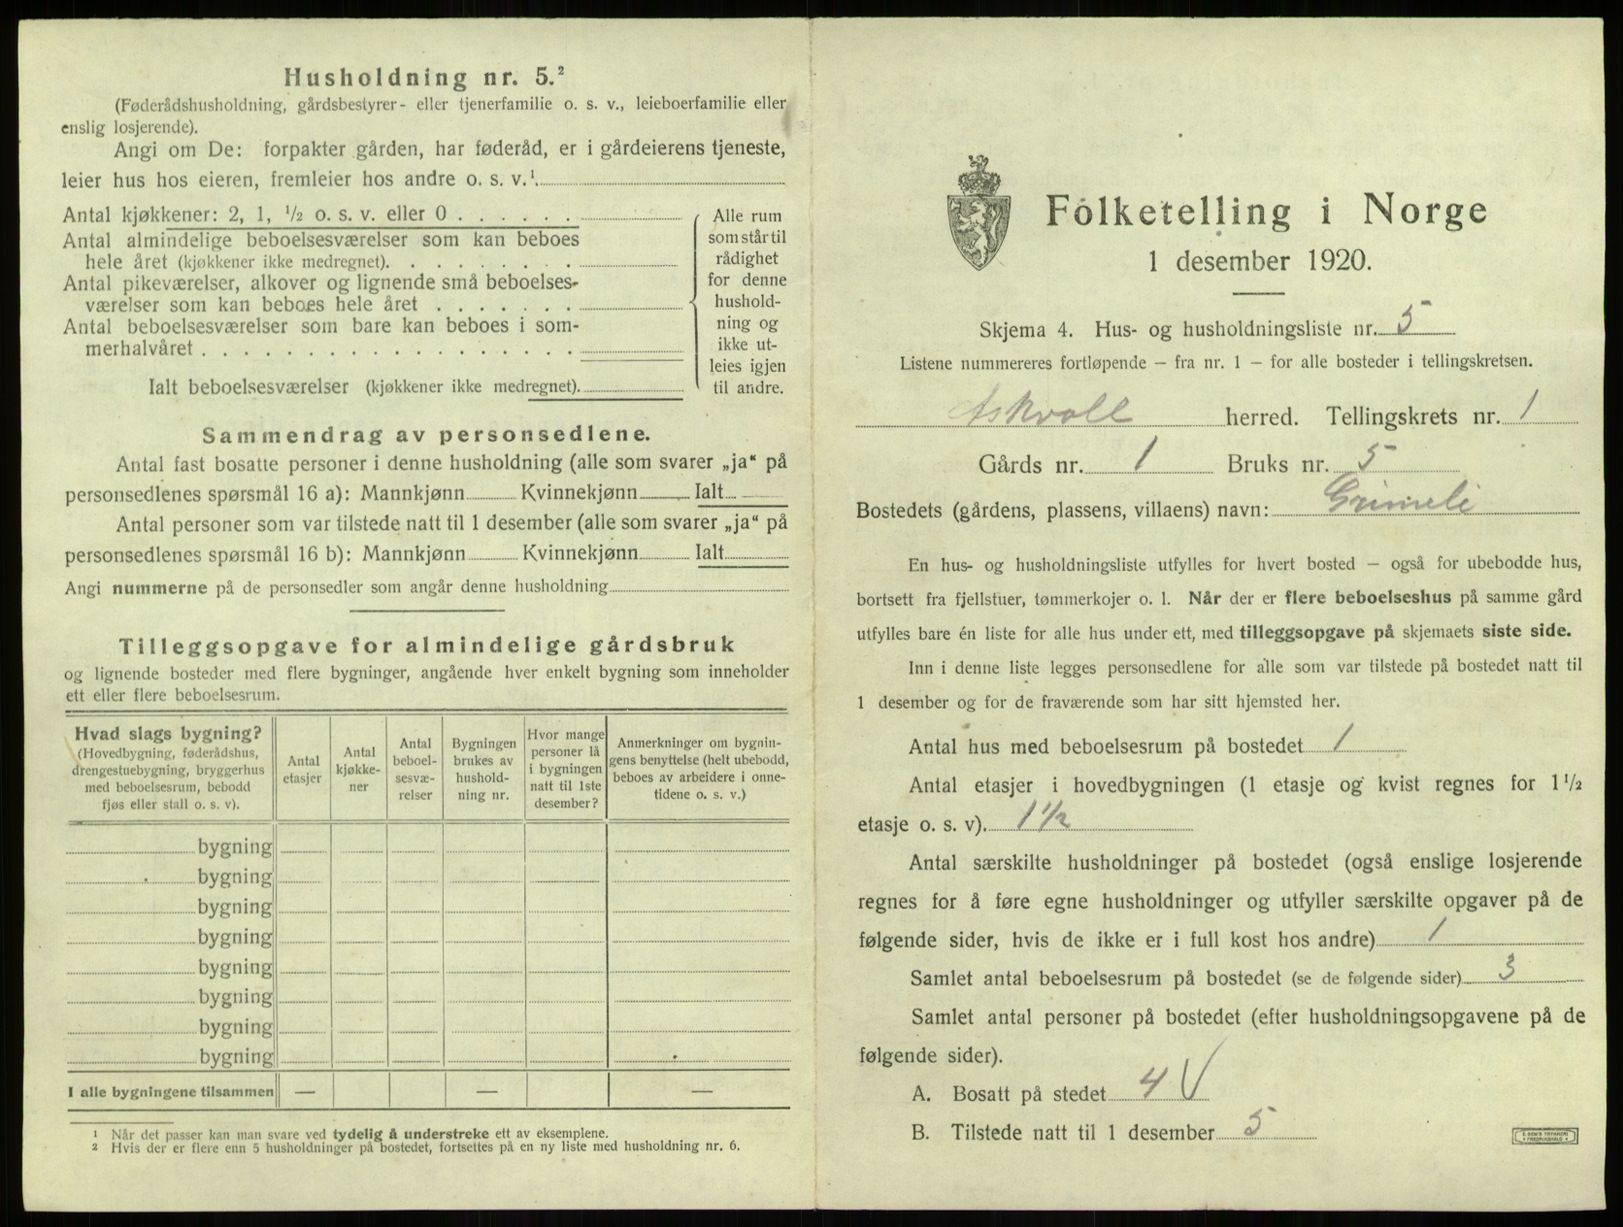 Husholdning nr. 5.²
(Føderådshusholdning, gårdsbestyrer- eller tjenerfamilie o. s. v., leieboerfamilie eller
enslig losjerende).
Angi om De: forpakter gården, har føderåd, er i gårdeierens tjeneste,
leier hus hos eieren, fremleier hos andre o. s. v.¹
Antal kjøkkener: 2, 1, ½ o. s. v. eller 0 . . . . . .
Antal almindelige beboelsesværelser som kan beboes
hele året (kjøkkener ikke medregnet). . . . . . . . .
Antal pikeværelser, alkover og lignende små beboelses-
værelser som kan beboes hele året . . . . . . .
Antal beboelsesværelser som bare kan beboes i som-
merhalvåret . . . . . . . . . . . . . . . . . .
Ialt beboelsesværelser (kjøkkener ikke medregnet).
Alle rum
som står til
rådighet
for denne
hushold-
ning og
ikke ut-
leies igjen
til andre.
Sammendrag av personsedlene.
Antal fast bosatte personer i denne husholdning (alle som svarer „ja“ på
personsedlenes spørsmål 16 a): Mannkjønn Kvinnekjønn Ialt
Antal personer som var tilstede natt til 1 desember (alle som svarer „ja“ på
personsedlenes spørsmål 16 b): Mannkjønn Kvinnekjønn Ialt
Angi nummerne på de personsedler som angår denne husholdning
Tilleggsopgave for almindelige gårdsbruk
og lignende bosteder med flere bygninger, angående hver enkelt bygning som inneholder
ett eller flere beboelsesrum.
Hvad slags bygning?
(Hovedbygning, føderådshus,
drengestuebygning, bryggerhus
med beboelsesrum, bebodd
fjøs eller stall o. s. v).
Antal
etasjer
Antal
kjøkke-
ner
Antal
beboel-
sesvæ-
relser
Bygningen
brukes av
hushold-
ning nr.
Hvor mange
personer lå
i bygningen
natt til 1ste
desember?
Anmerkninger om bygnin-
gens benyttelse (helt ubebodd,
beboes av arbeidere i onne-
tidene o. s. v.)
bygning
bygning
bygning
bygning
bygning
bygning
bygning
bygning
I alle bygningene tilsammen — — —
¹ Når det passer kan man svare ved tydelig å understreke ett av eksemplene.
² Hvis der er flere enn 5 husholdninger på bostedet, fortsettes på en ny liste med husholdning nr. 6.
Folketelling i Norge
1 desember 1920.
Skjema 4. Hus- og husholdningsliste nr. 5
Listene nummereres fortløpende — fra nr. 1 — for alle bosteder i tellingskretsen.
Askvoll herred. Tellingskrets nr. 1
Gårds nr. 1 Bruks nr. 5
Bostedets (gårdens, plassens, villaens) navn: Grimeli
En hus- og husholdningsliste utfylles for hvert bosted — også for ubebodde hus,
bortsett fra fjellstuer, tømmerkojer o. l. Når der er flere beboelseshus på samme gård
utfylles bare én liste for alle hus under ett, med tilleggsopgave på skjemaets siste side.
Inn i denne liste legges personsedlene for alle som var tilstede på bostedet natt til
1 desember og for de fraværende som har sitt hjemsted her.
Antal hus med beboelsesrum på bostedet 1
Antal etasjer i hovedbygningen (1 etasje og kvist regnes for 1½
etasje o. s. v). 1½
Antal særskilte husholdninger på bostedet (også enslige losjerende
regnes for å føre egne husholdninger og utfyller særskilte opgaver på de
følgende sider, hvis de ikke er i full kost hos andre) 1
Samlet antal beboelsesrum på bostedet (se de følgende sider) 3
Samlet antal personer på bostedet (efter husholdningsopgavene på de
følgende sider).
A. Bosatt på stedet 4 V
B. Tilstede natt til 1 desember 5